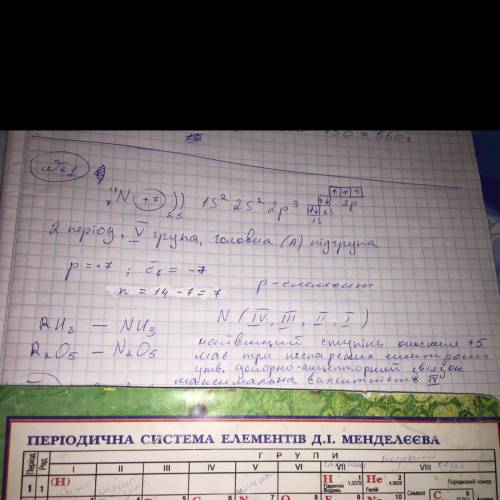 №1
14 7 N +7 )) 25 1S² 2S² 2p³ 1S 2S 2p
2 період, V група, головна (А) підгрупа
p = +7 ; ē = -7
n = 14 - 7 = 7 p-елемент
RH₃ — NH₃ N (IV, III, II, I)
R₂O₅ — N₂O₅ найвищий ступінь окиснення +5
має три неспарених електрони
утв. донорно-акцепторний зв'язок
максимальна валентність IV
ПЕРІОДИЧНА СИСТЕМА ЕЛЕМЕНТІВ Д.І. МЕНДЕЛЄЄВА
Період Ряд Г Р У П И
I II III IV V VI VII VIII
1 1 (H) H 1 1,0079 Водень He 2 4,0026 Гелій Порядковий номер
N O F C 6